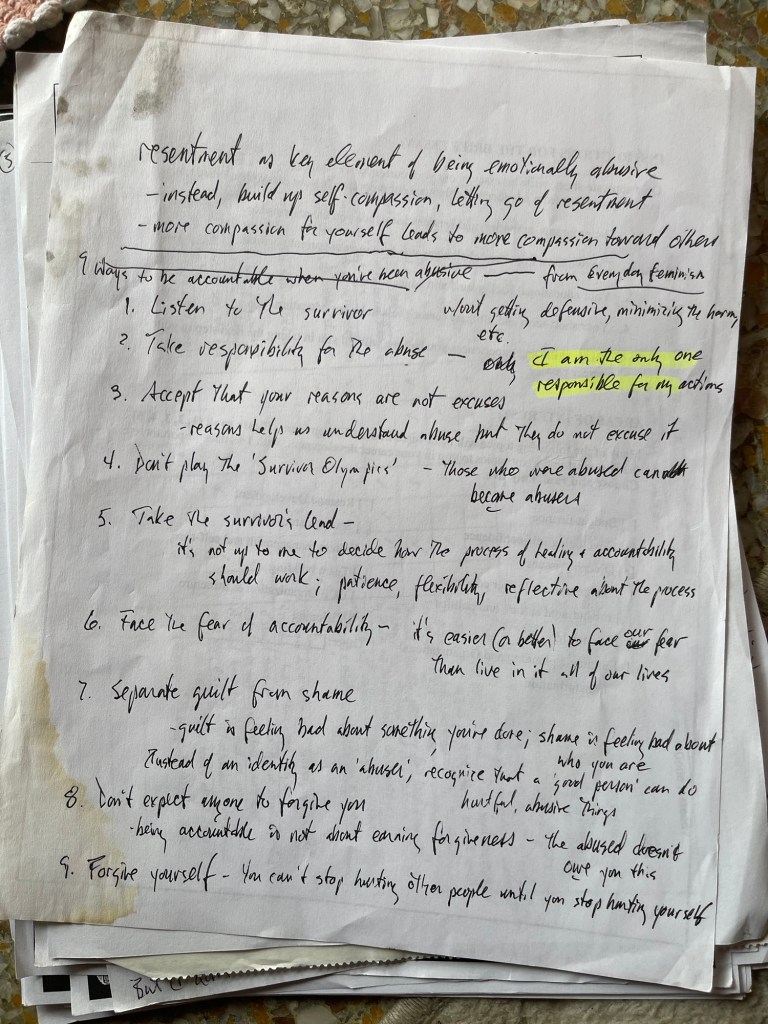 resentment as key element of being emotionally abusive
- instead, build up self-compassion, letting go of resentment
- more compassion for yourself leads to more compassion toward others
9 ways to be accountable when you've been abusive — from Everyday Feminism
1. Listen to the survivor w/out getting defensive, minimizing the harm,
etc.
2. Take responsibility for the abuse — I am the only one
responsible for my actions
3. Accept that your reasons are not excuses
- reasons help us understand abuse but they do not excuse it
4. Don't play the 'Survivor Olympics' - those who were abused can
become abusers
5. Take the survivor's lead -
it's not up to me to decide how the process of healing + accountability
should work; patience, flexibility, reflective about the process
6. Face the fear of accountability - it's easier (or better) to face our fear
than live in it all of our lives
7. Separate guilt from shame
- guilt is feeling bad about something you've done; shame is feeling bad about
who you are
Instead of an identity as an 'abuser', recognize that a 'good person' can do
hurtful, abusive things
8. Don't expect anyone to forgive you
- being accountable is not about earning forgiveness - the abused doesn't
owe you this
9. Forgive yourself - You can't stop hurting other people until you stop hurting yourself